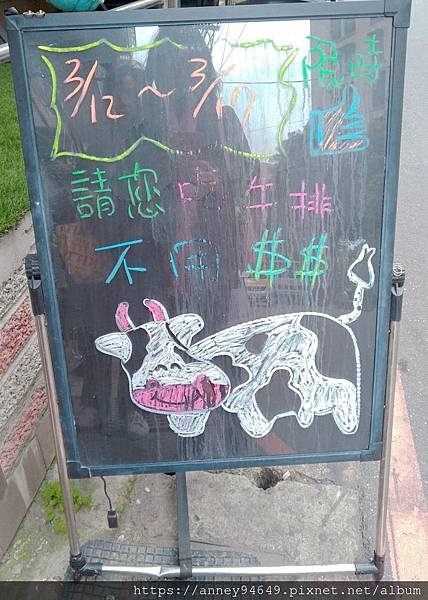 3/12 ~ 3/17
限時
請您喝牛排
不用$$
https://anney94649.pixnet.net/album